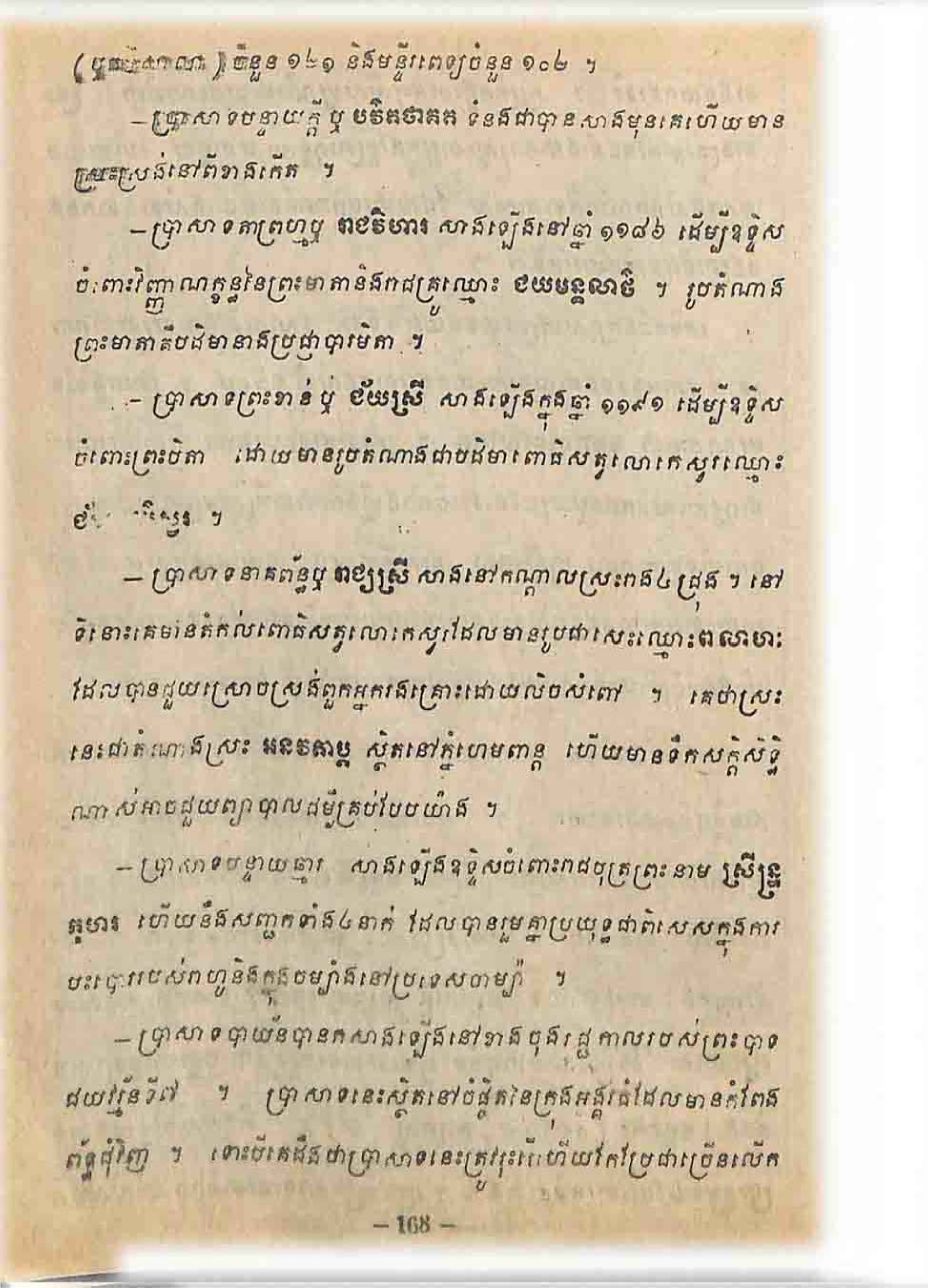 ចំនួន ១២១ និងមន្ទីរពេទ្យចំនួន ១០២ ។
—ប្រាសាទបន្ទាយក្តី ឬ បវិតថាគត ទំនងជាបានសាងមុនគេហើយមាន
ស្រះស្រង់នៅពីខាងកើត ។
—ប្រាសាទតាព្រហ្មឬ រាជវិហារ សាងឡើងនៅឆ្នាំ ១១៨៦ ដើម្បីឧទ្ទិស
ចំពោះវិញ្ញាណក្ខន្ធនៃព្រះមាតានិងរាជគ្រូឈ្មោះ ជយមន្តលាថ៌ ។ រូបតំណាង
ព្រះមាតាគឺបដិមានាងប្រជ្ញាបារមិតា ។
— ប្រាសាទព្រះខាន់ ឬ ជ័យស្រី សាងឡើងក្នុងឆ្នាំ ១១៩១ ដើម្បីឧទ្ទិស
ចំពោះព្រះបិតា ដោយមានរូបតំណាងជាបដិមាពោធិសត្វលោកេស្វរឈ្មោះ
។
— ប្រាសាទនាគព័ន្ធឬ រាជ្យស្រី សាងនៅកណ្តាលស្រះរាង៤ជ្រុង ។ នៅ
ទីនោះគេមានតំកល់ពោធិសត្វលោកេស្វរដែលមានរូបជាសេះឈ្មោះពលាហៈ
ដែលបានជួយស្រោចស្រង់ពួកអ្នករងគ្រោះដោយលិចសំពៅ ។ គេថាស្រះ
នេះជាតំណាងស្រះ អនវតាប្ត ស្ថិតនៅភ្នំហេមពាន្ត ហើយមានទឹកសក្តិសិទ្ធិ
ណាស់អាចជួយព្យាបាលជម្ងឺគ្រប់បែបយ៉ាង ។
—ប្រាសាទបន្ទាយឆ្មារ សាងឡើងឧទ្ទិសចំពោះរាជបុត្រព្រះនាម ស្រីន្ទ្រ
គុហារ ហើយនឹងសញ្ជកទាំង៤នាក់ ដែលបានរួមគ្នាប្រយុទ្ធជាពិសេសក្នុងការ
បះបោររបស់រាហូនិងក្នុងចម្បាំងនៅប្រទេសចាម្ប៉ា ។
—ប្រាសាទបាយ័នបានកសាងឡើងនៅខាងចុងរជ្ជកាលរបស់ព្រះបាទ
ជយវរ្ម័នទី៧ ។ ប្រាសាទនេះស្ថិតនៅចំផ្ចិតនៃក្រុងអង្គរធំដែលមានកំពែង
ព័ទ្ធជុំវិញ ។ ទោះបីគេដឹងថាប្រាសាទនេះត្រូវរុះរើហើយកែប្រែជាច្រើនលើក
— 168 —